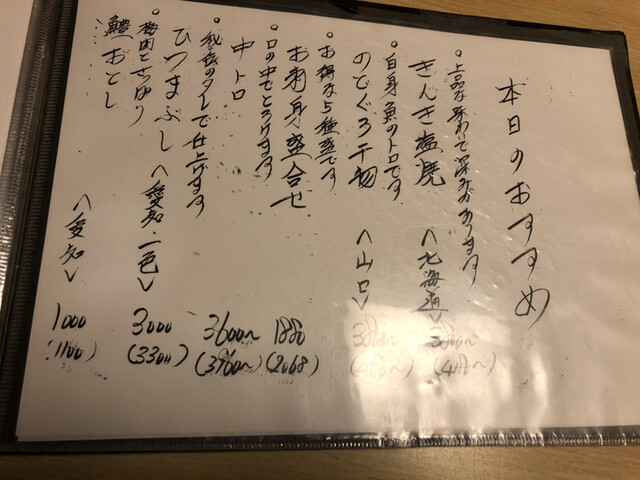 本日のおすすめ
・上品な味わいで深みがあります
きんき塩焼 〈北海道〉
・白身魚のトロです
のどぐろ干物 〈山口〉
・お得な5種盛です
お刺身盛合せ 1880 (2068)
・口の中でとろけます
中トロ 3600〜 (3960〜)
・秘伝のタレで仕上げます
ひつまぶし 〈愛知・一色〉 3000 (3300)
・梅肉でさっぱり
鱧おとし 〈愛知〉 1000 (1100)